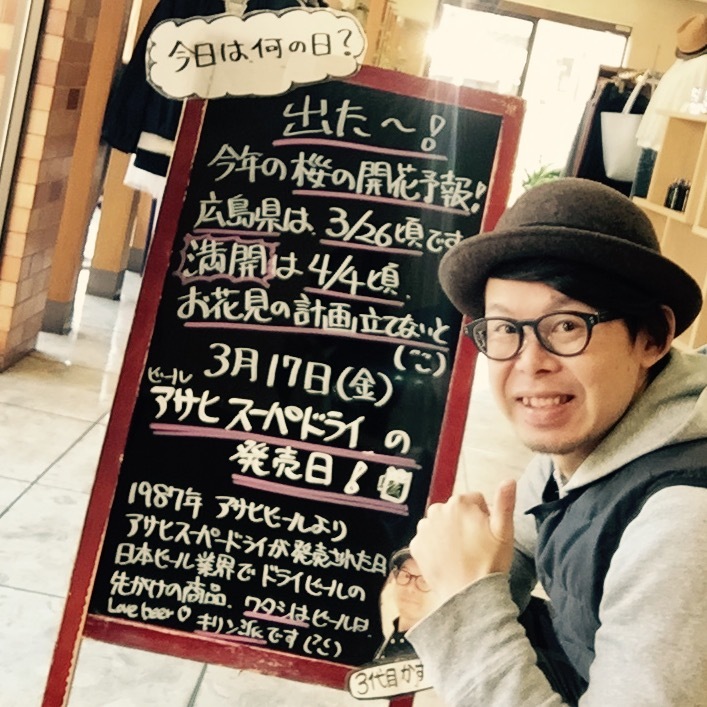 今日は何の日?
出た〜!
今年の桜の開花予報!
広島県は、3/26頃です
満開は4/4頃.
お花見の計画立てないと
(ごこ)
3月17日(金)
ビール
アサヒスーパードライの
発売日!
1987年 アサヒビールより
アサヒスーパードライが発売された日
日本ビール業界でドライビールの
先がけの商品. ワタシはビールは、
Love beer♡ キリン派です(ごこ)
3代目かず